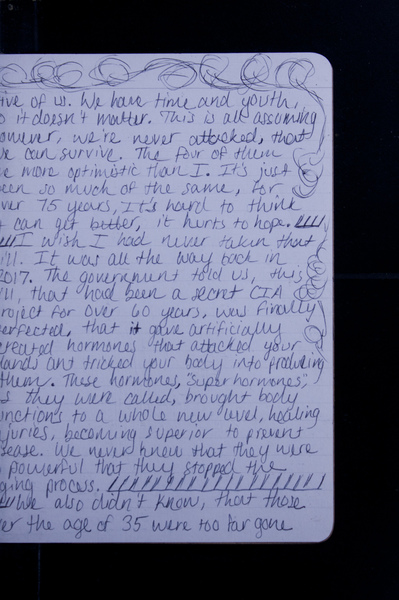 ive of us. We have time and youth,
o it doesn't matter. This is all assuming
owever, we're never attacked, that
ve can survive. The four of them
re more optimistic than I. It's just
een so much of the same, for
ver 75 years, It's hard to think
t can get better, it hurts to hope.
I wish I had never taken that
ill. It was all the way back in
2017. The government told us, this
ill, that had been a secret CIA
roject for over 60 years, was finally
erfected, that it gave artificially
created hormones that attacked your
lands ant tricked your body into producing
them. These hormones, "super hormones",
s they were called, brought body
unctions to a whole new level, healing
njuries, becoming superior to prevent
sease. We never knew that they were
o powerful that they stopped the
ging process.
We also didn't know, that those
er the age of 35 were too far gone